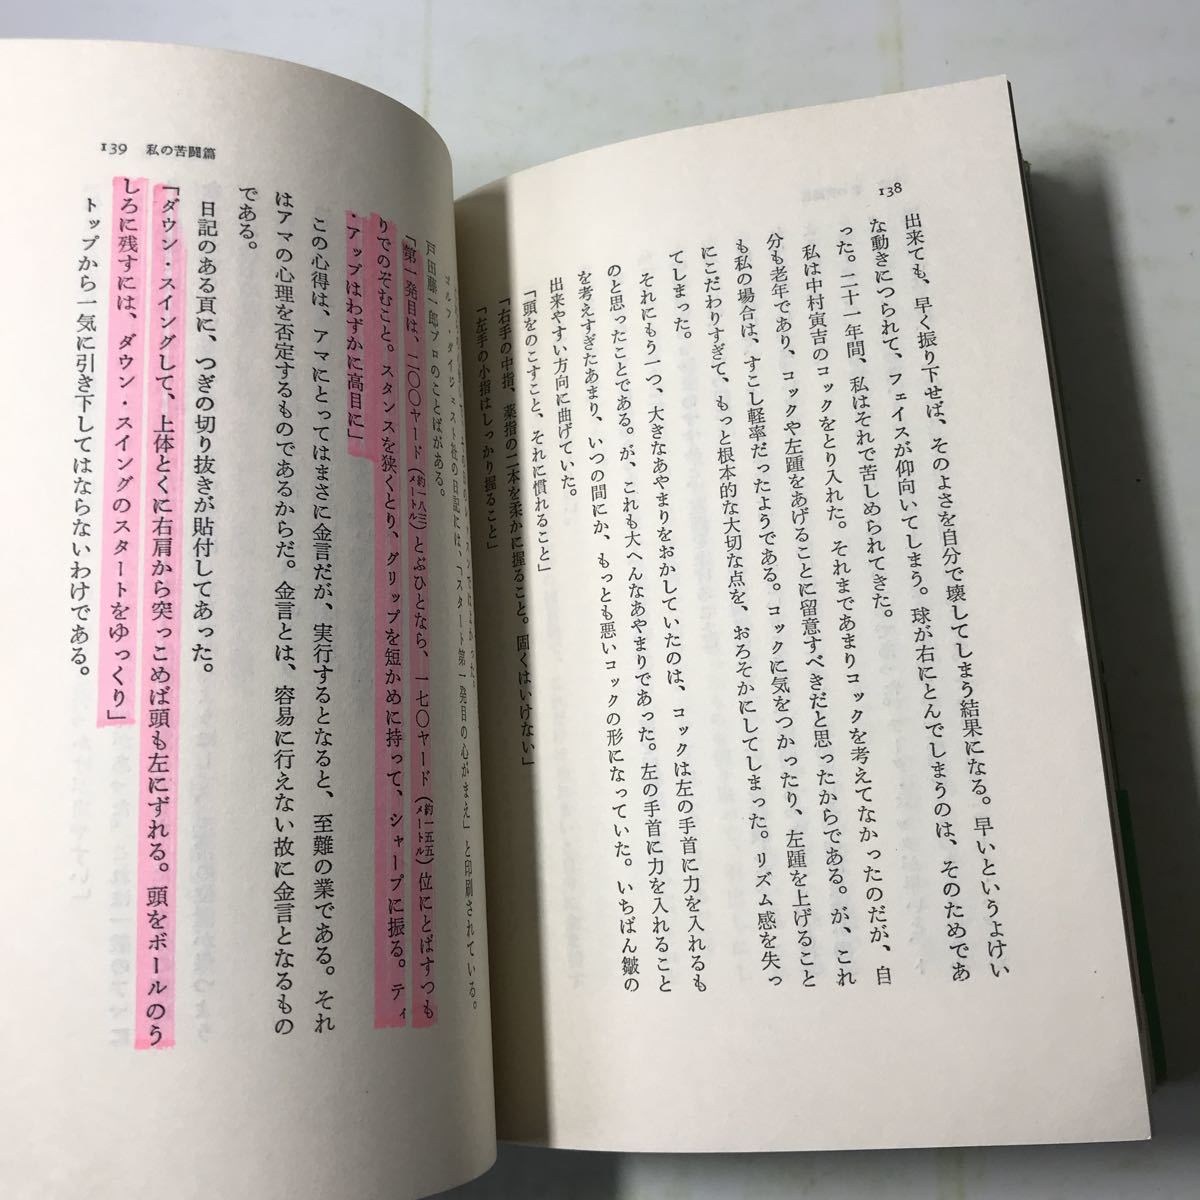 138
出来ても、早く振り下せば、そのよさを自分で壊してしまう結果になる。早いというよけい
な動きにつられて、フェイスが仰向いてしまう。球が右にとんでしまうのは、そのためであ
った。二十一年間、私はそれで苦しめられてきた。
私は中村寅吉のコックをとり入れた。それまであまりコックを考えてなかったのだが、自
分も老年であり、コックや左踵をあげることに留意すべきだと思ったからである。が、これ
も私の場合は、すこし軽率だったようである。コックに気をつかったり、左踵を上げること
にこだわりすぎて、もっと根本的な大切な点を、おろそかにしてしまった。リズム感を失っ
てしまった。
それにもう一つ、大きなあやまりをおかしていたのは、コックは左の手首に力を入れるも
のと思ったことである。が、これも大へんなあやまりであった。左の手首に力を入れること
を考えすぎたあまり、いつの間にか、もっとも悪いコックの形になっていた。いちばん皺の
出来やすい方向に曲げていた。
「頭をのこすこと、それに慣れること」
「右手の中指、薬指の二本を柔かに握ること。固くはいけない」
「左手の小指はしっかり握ること」
139 私の苦闘篇
ゴルフ・ダイジェスト社の日記には、「スタート第一発目の心がまえ」と印刷されている。
戸田藤一郎プロのことばがある。
「第一発目は、二〇〇ヤード(約一八三メートル)とぶひとなら、一七〇ヤード(約一五五メートル)位にとばすつも
りでのぞむこと。スタンスを狭くとり、グリップを短かめに持って、シャープに振る。ティ
・アップはわずかに高目に」
この心得は、アマにとってはまさに金言だが、実行するとなると、至難の業である。それ
はアマの心理を否定するものであるからだ。金言とは、容易に行えない故に金言となるもの
である。
日記のある頁に、つぎの切り抜きが貼付してあった。
「ダウン・スイングして、上体とくに右肩から突っこめば頭も左にずれる。頭をボールのう
しろに残すには、ダウン・スイングのスタートをゆっくり」
トップから一気に引き下してはならないわけである。